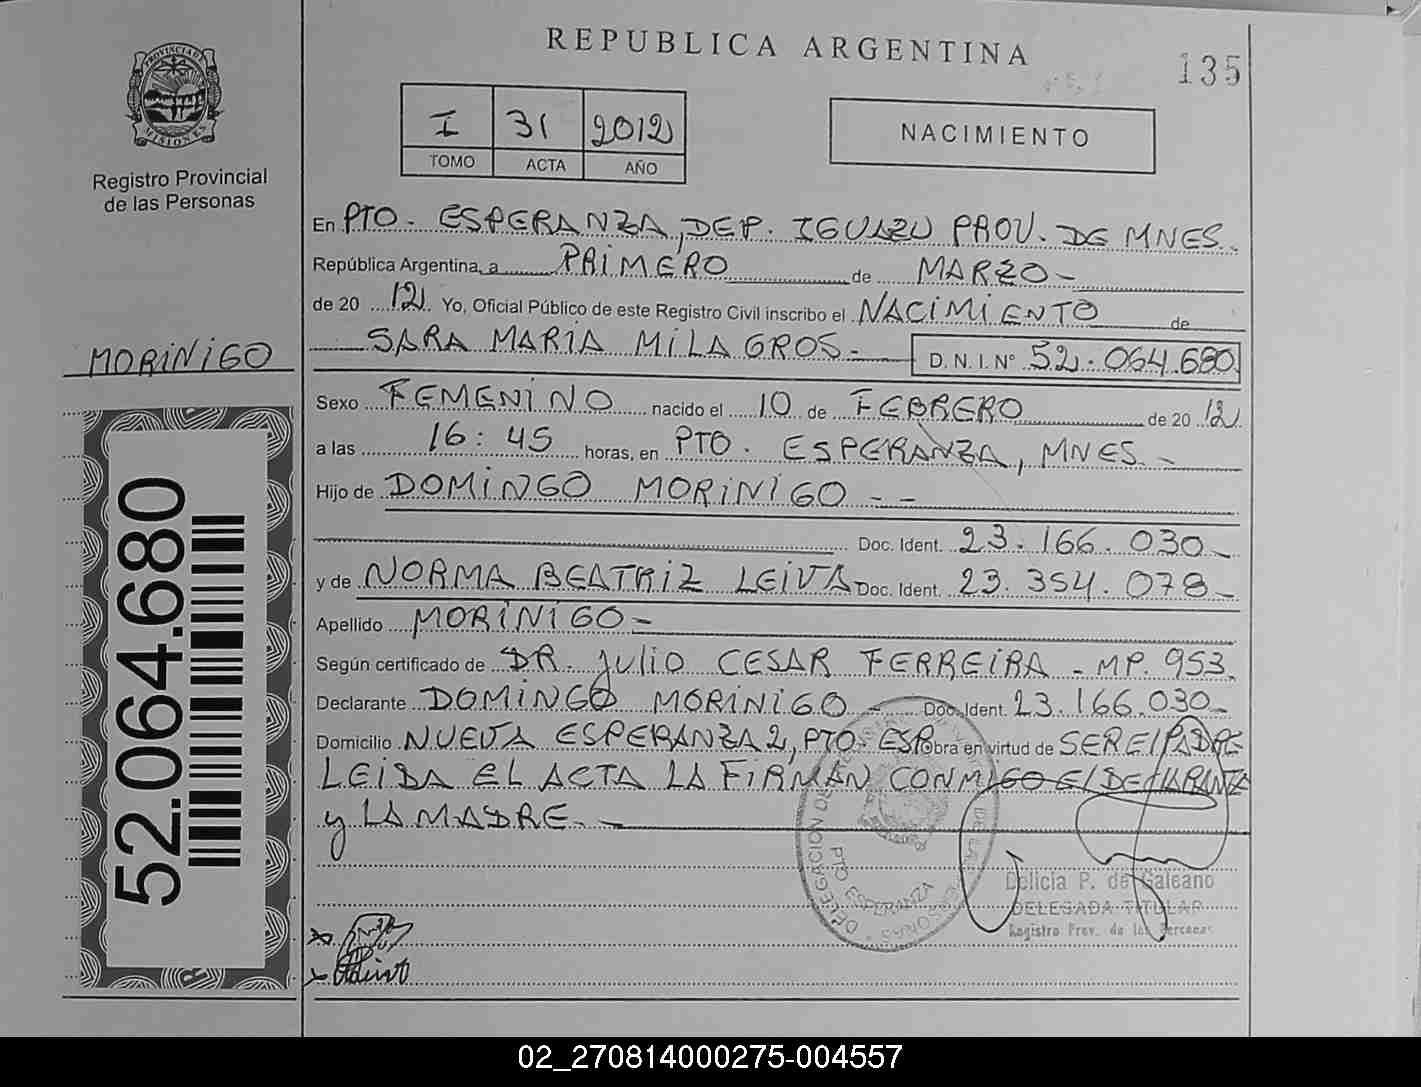 REPUBLICA ARGENTINA
135
PROVINCIA DE MISIONES
Registro Provincial
de las Personas
I 31 2012
TOMO ACTA AÑO
NACIMIENTO
En PTO. ESPERANZA, DEP. IGUAZU PROV. DE MNES.
República Argentina, a PRIMERO de MARZO-
de 20 12 Yo, Oficial Público de este Registro Civil inscribo el NACIMIENTO de
SARA MARIA MILAGROS- D. N. I. Nº 52.064.680
MORINIGO
Sexo FEMENINO nacido el 10 de FEBRERO de 20 12
a las 16:45 horas, en PTO. ESPERANZA, MNES.-
Hijo de DOMINGO MORINIGO --
Doc. Ident. 23.166.030-
y de NORMA BEATRIZ LEIVA Doc. Ident. 23.354.078-
Apellido MORINIGO-
Según certificado de DR. Julio CESAR FERREIRA - MP. 953.
Declarante DOMINGO MORINIGO - Doc. Ident. 23.166.030-
Domicilio NUEVA ESPERANZA 2, PTO. ESP. obra en virtud de SER El PADRE
LEIDA EL ACTA LA FIRMAN CONMIGO El DECLARANTE
y LA MADRE.-
52.064.680
DELEGACION DE
PTO ESPERANZA
Delicia P. de Galeano
DELEGADA TITULAR
Registro Prov. de las Personas
02_270814000275-004557